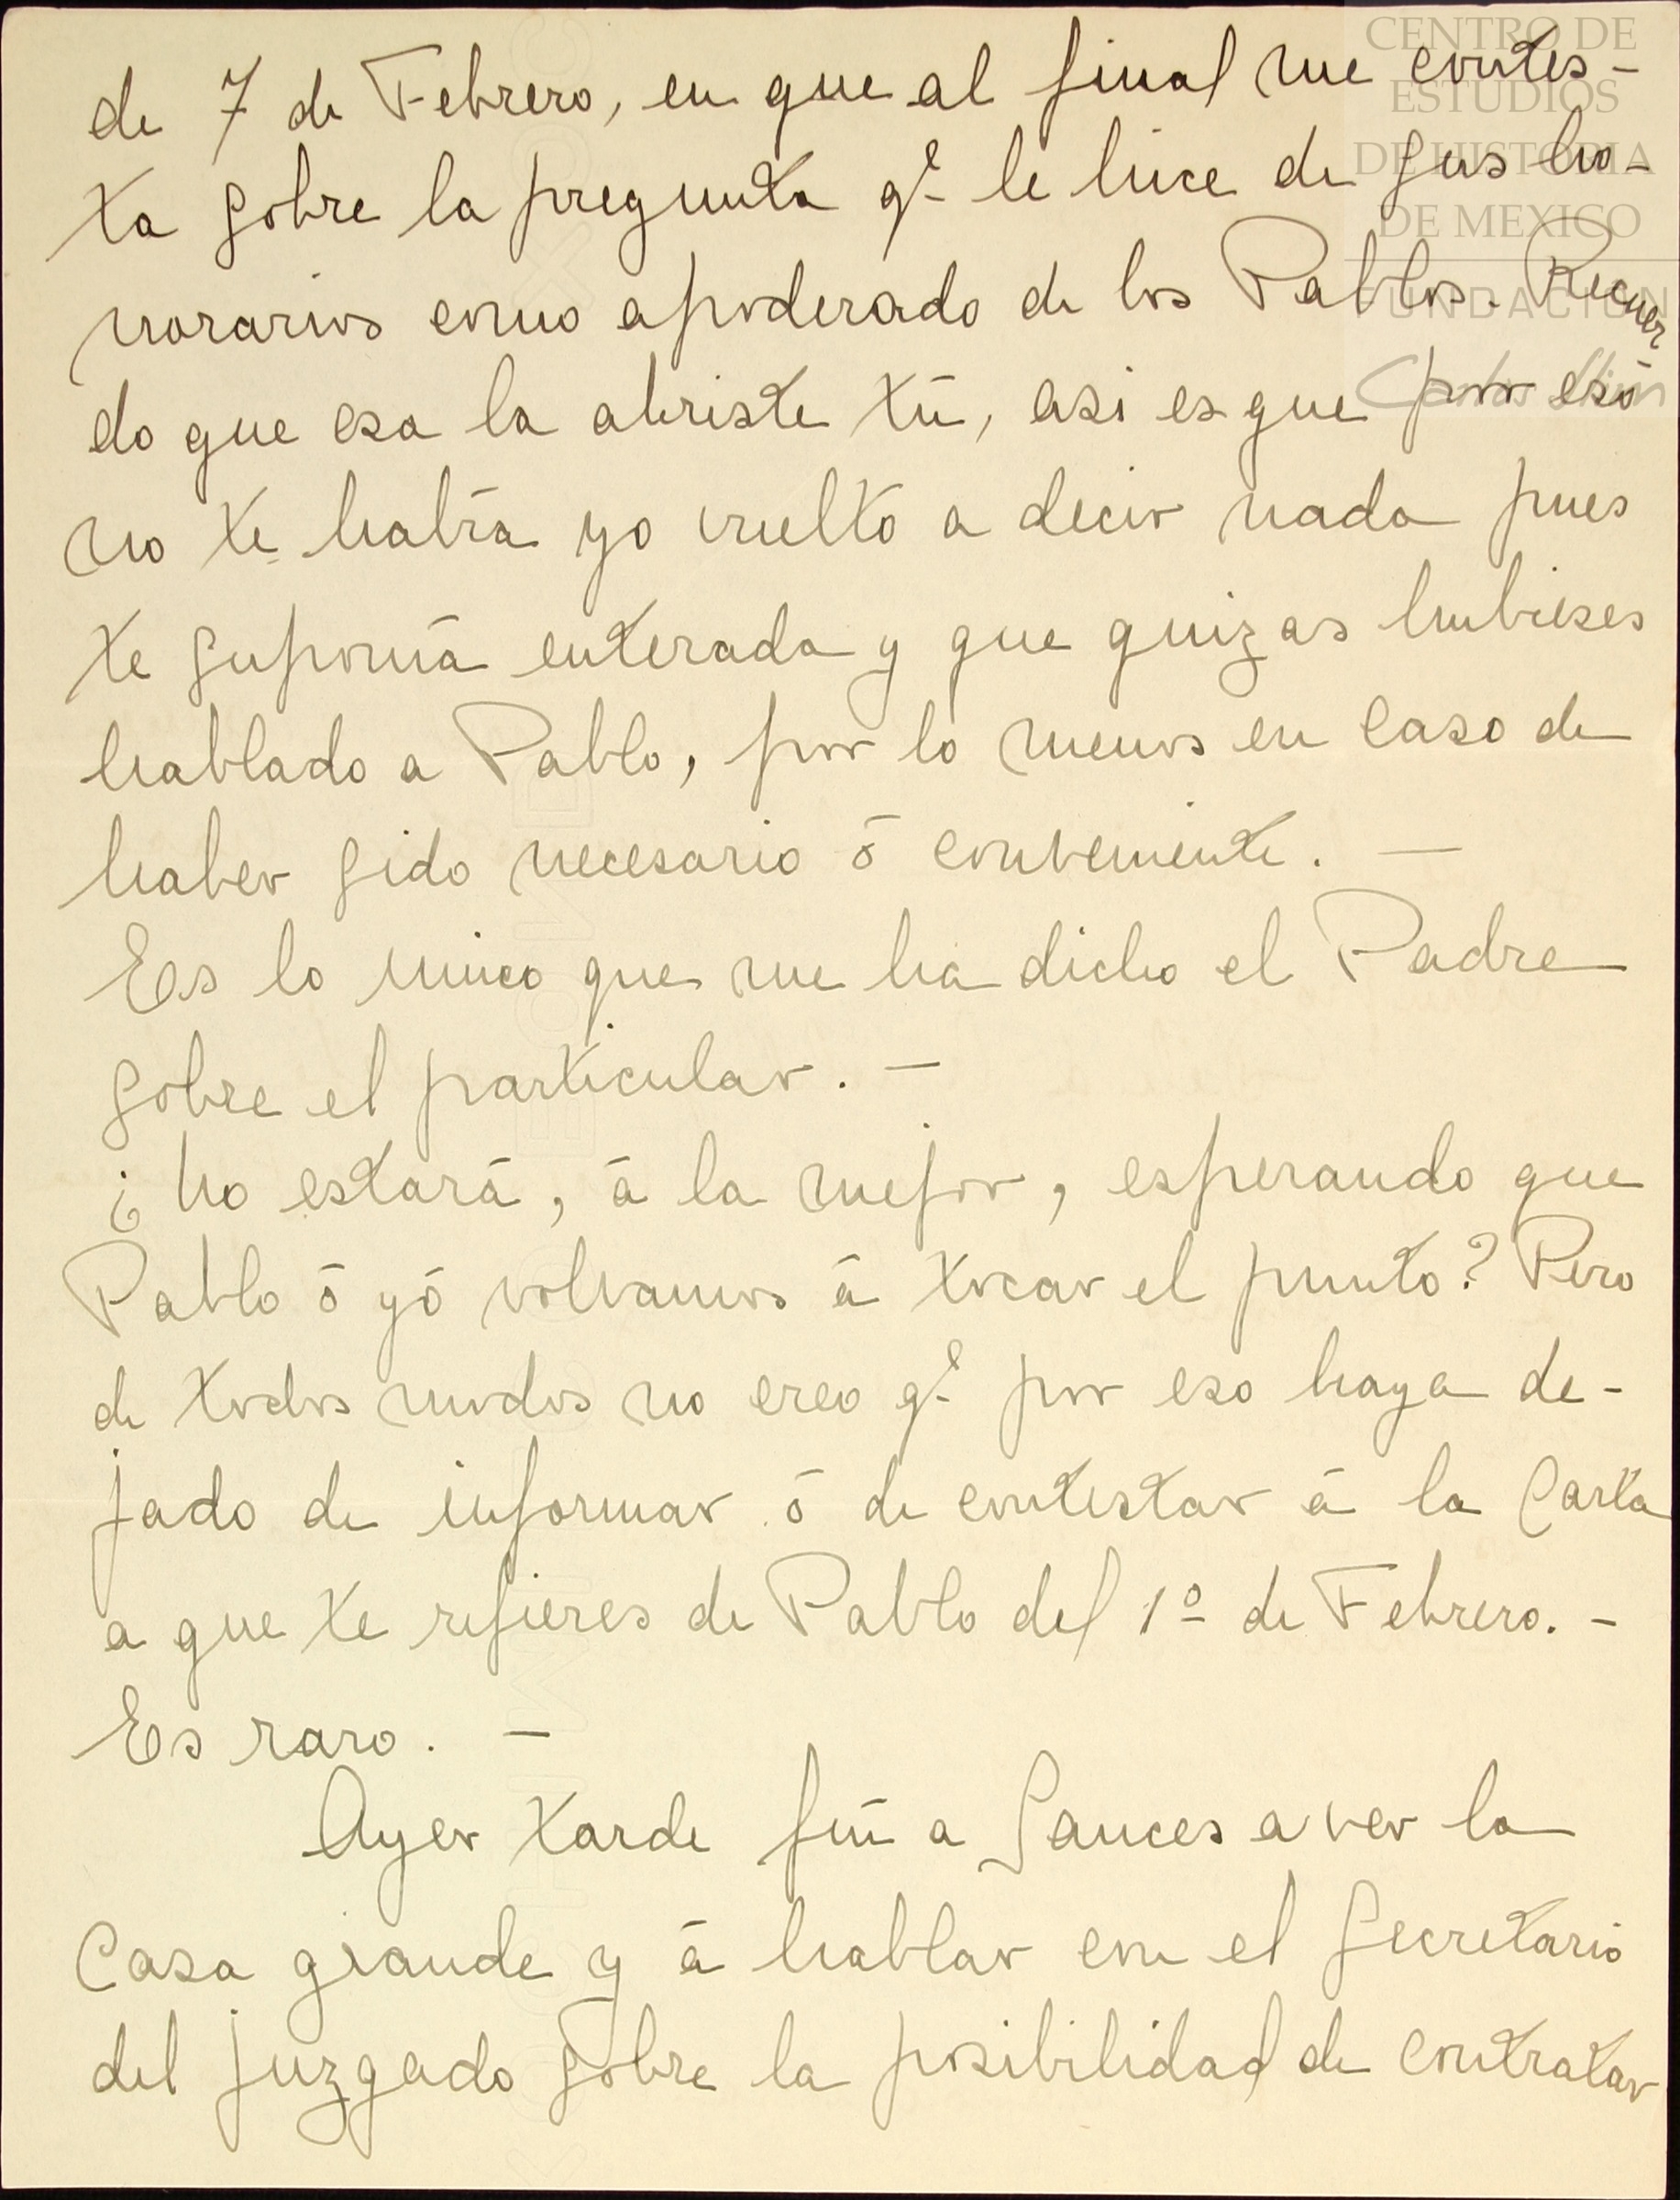 CENTRO DE
ESTUDIOS
DE HISTORIA
DE MEXICO
FUNDACIÓN
Carlos Slim
de 7 de Febrero, en que al final me contes-
ta sobre la pregunta qᵉ le hice de sus ho-
norarios como apoderado de los Pablos. Recuer
do que esa la abriste tú, asi es que por eso
no te habría yo vuelto a decir nada pues
te suponía enterada y que quizas hubieses
hablado a Pablo, por lo menos en caso de
haber sido necesario ó conveniente. —
Es lo unico que me ha dicho el Padre
sobre el particular. —
¿ No estará, á la mejor, esperando que
Pablo ó yó volvamos á tocar el punto? Pero
de todos modos no creo qᵉ por eso haya de-
jado de informar ó de contestar á la Carta
a que te refieres de Pablo del 1º de Febrero. -
Es raro. —
Ayer tarde fuí a Sauces a ver la
Casa grande y á hablar con el Secretario
del juzgado sobre la posibilidad de contratar